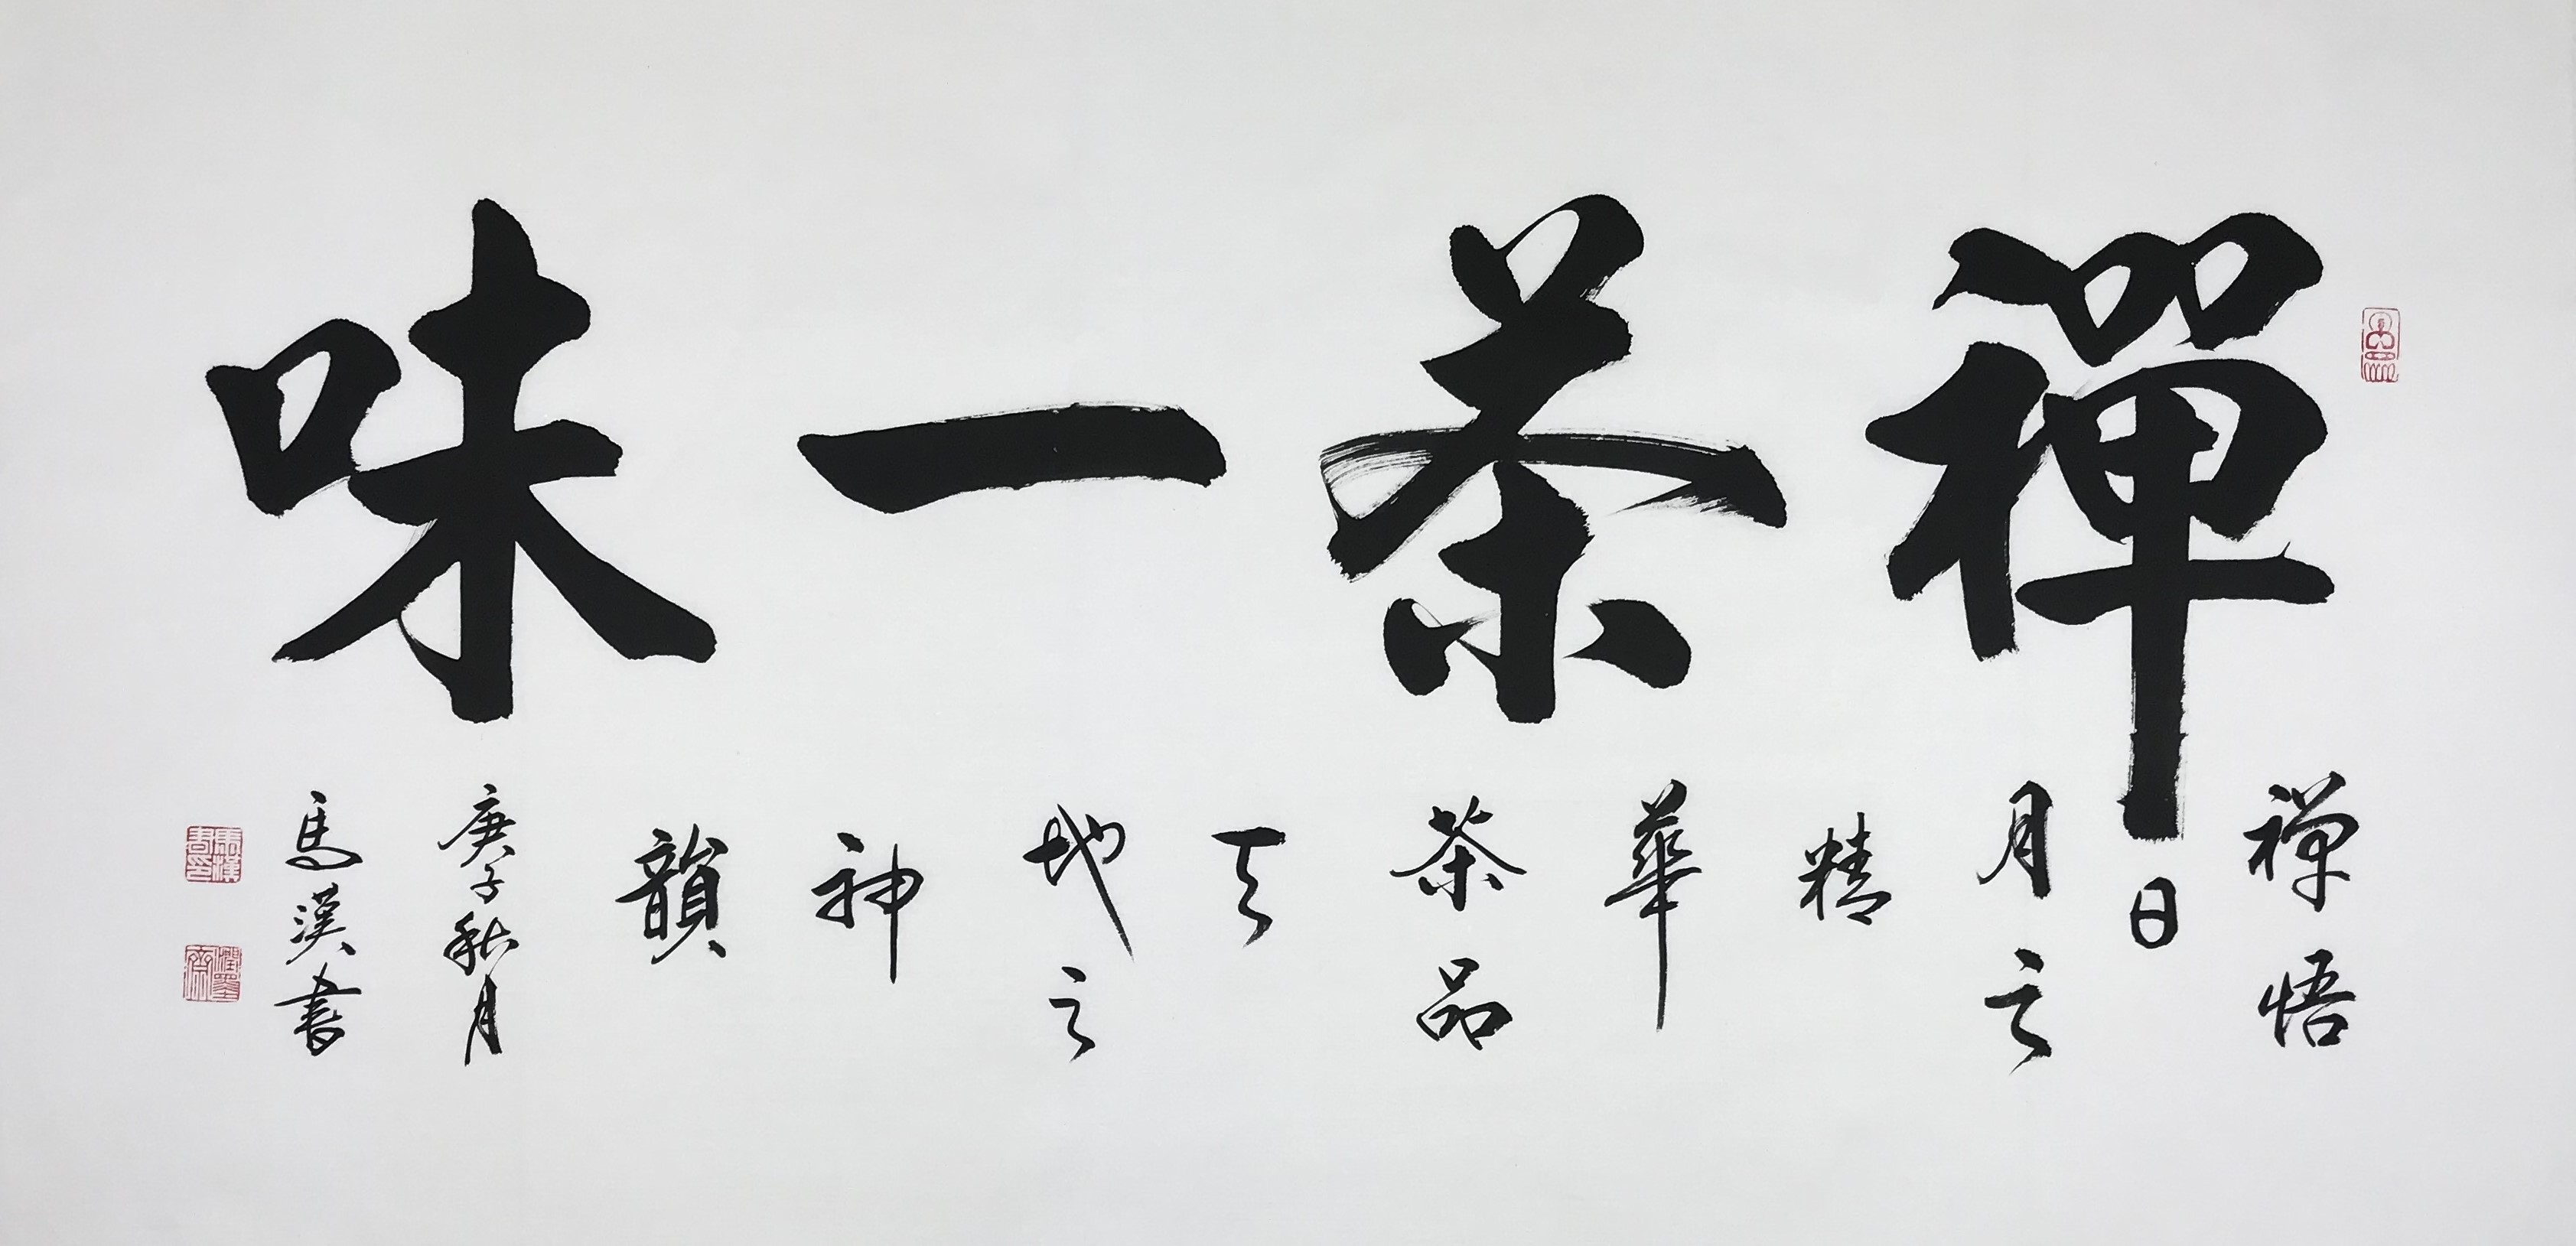 禪茶一味
禅悟
日
月之
精
華
茶品
天
地之
神
韻
庚子秋月
馬漢書
馬漢書印